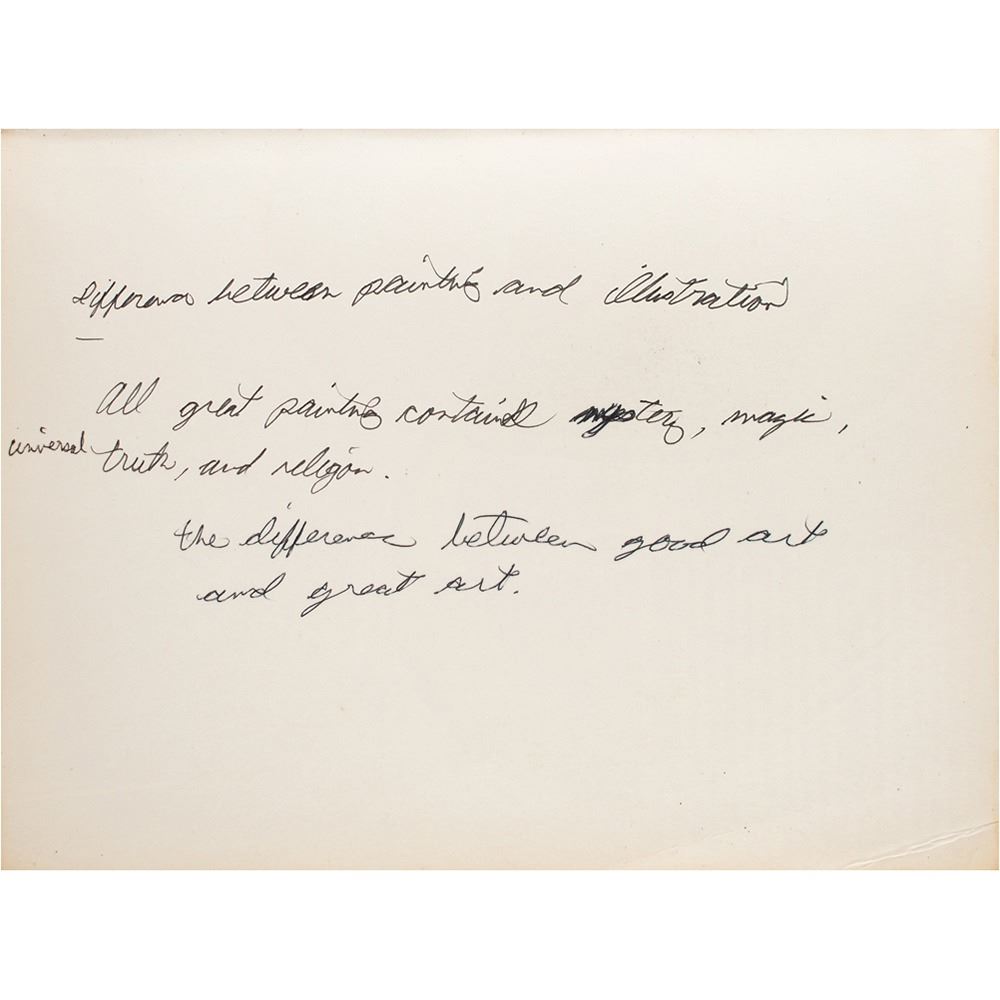 difference between painting and illustration
All great painting contains mystery, magic,
universal truth, and religion.
the difference between good art
and great art.